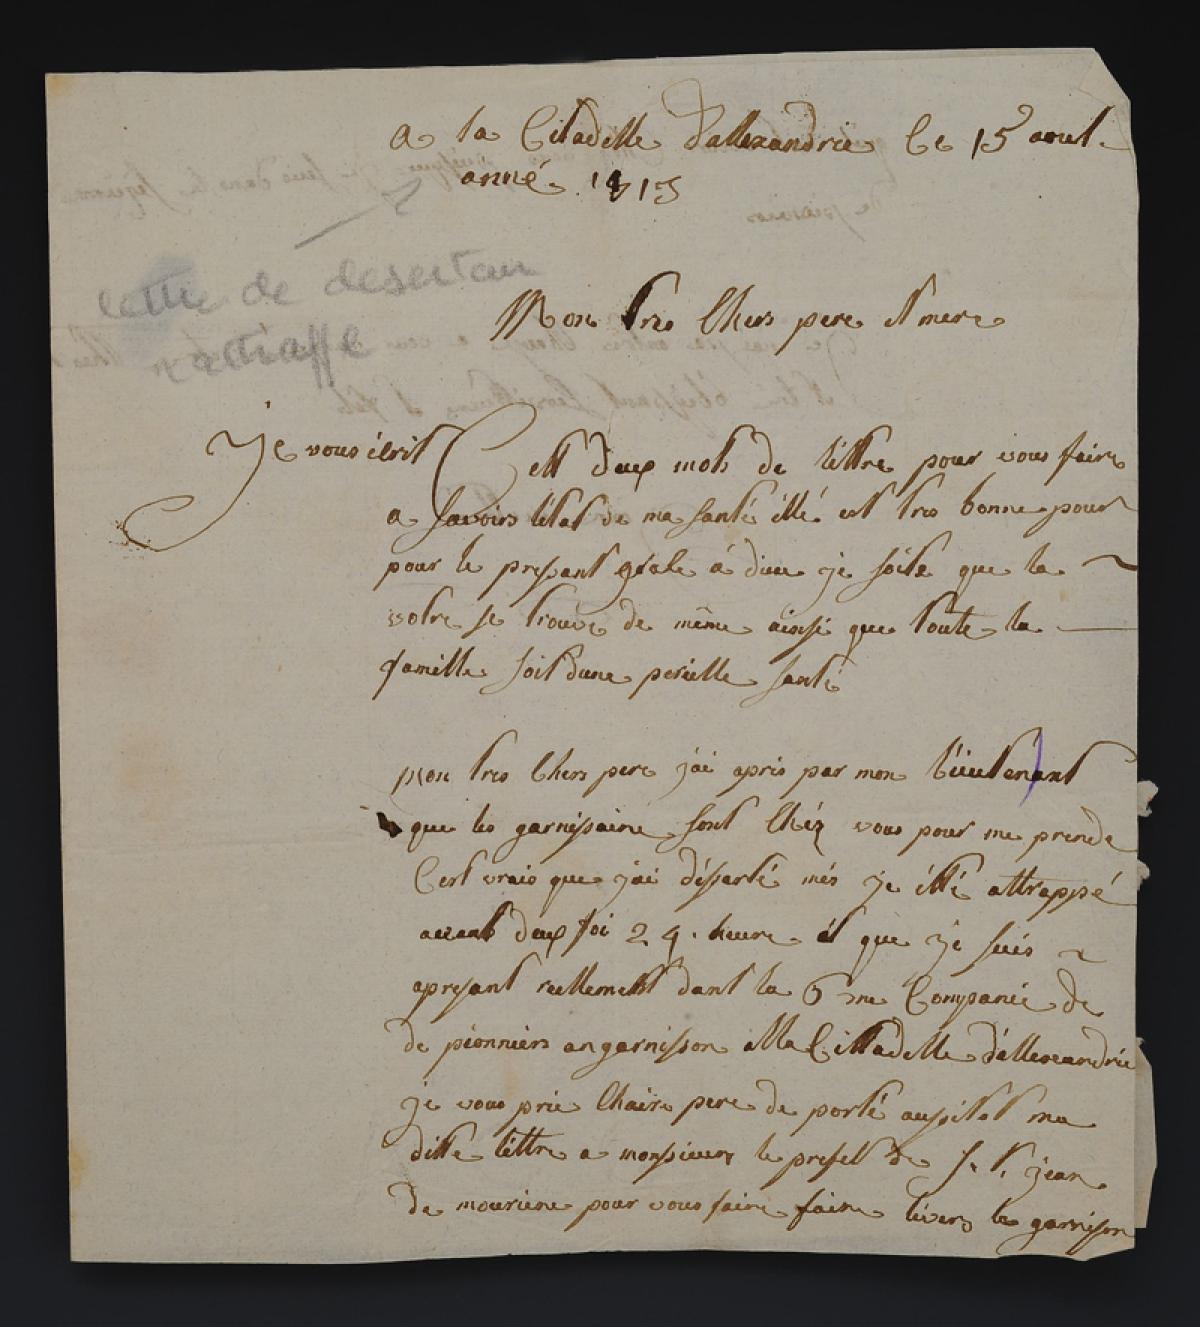 a la Citadelle d'allexandrie Ce 15 aout
anné 1813
lettre de deserteur
rattraffé
Mon tres Chers pere et mere
je vous écrit Cett deux mots de lettre pour vous faire
a savoirs létat de ma santé éllé est tres bonne pour
pour le presant grale á dieu je soite que la
votre se trouve de même ainsi que toute la
famille soit dune perielle santé
mon tres Chers pere j'ai apris par mon liéutenant
que les garnissaire sont Chéz vous pour me prende
Cest vrais que j'ai désserté més je étté attrappé
avant deux foi 24 heure et que je suis
apresant reellement dant la 6 me Companie de
de pionniers angarnisson alla Cittadelle d'allexandrie
je vous prie Chaire pere de porté aussitot ma
ditte lettre a monsieurs le prefet de S. t. jean
de mouriene pour vous faire faire livers les garnison